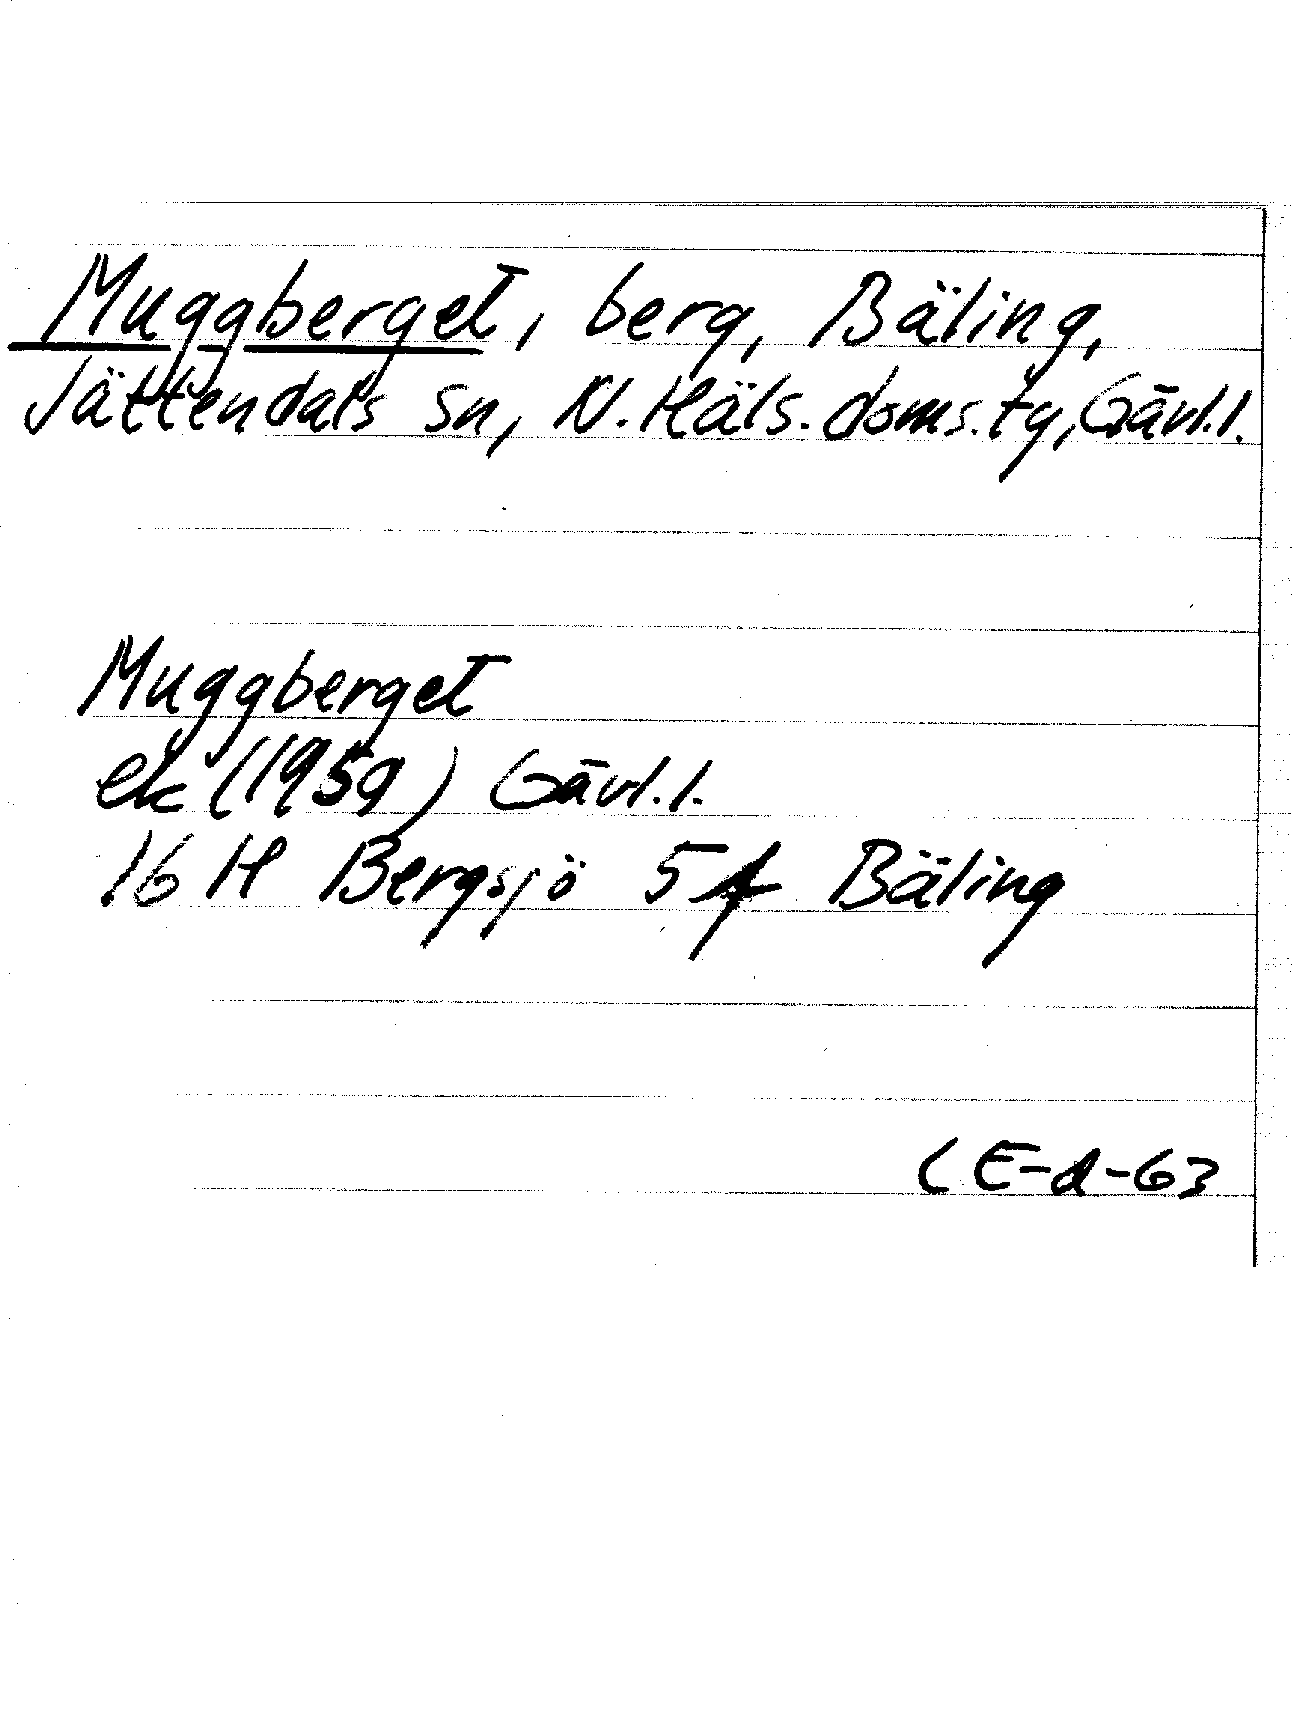 Muggberget, berg, Bäling,
Jättendals sn, N. Häls. doms. tg, Gävl.l.
Muggberget
ek (1959) Gävl.l.
16 H Bergsjö 5 f Bäling
CE-d-63